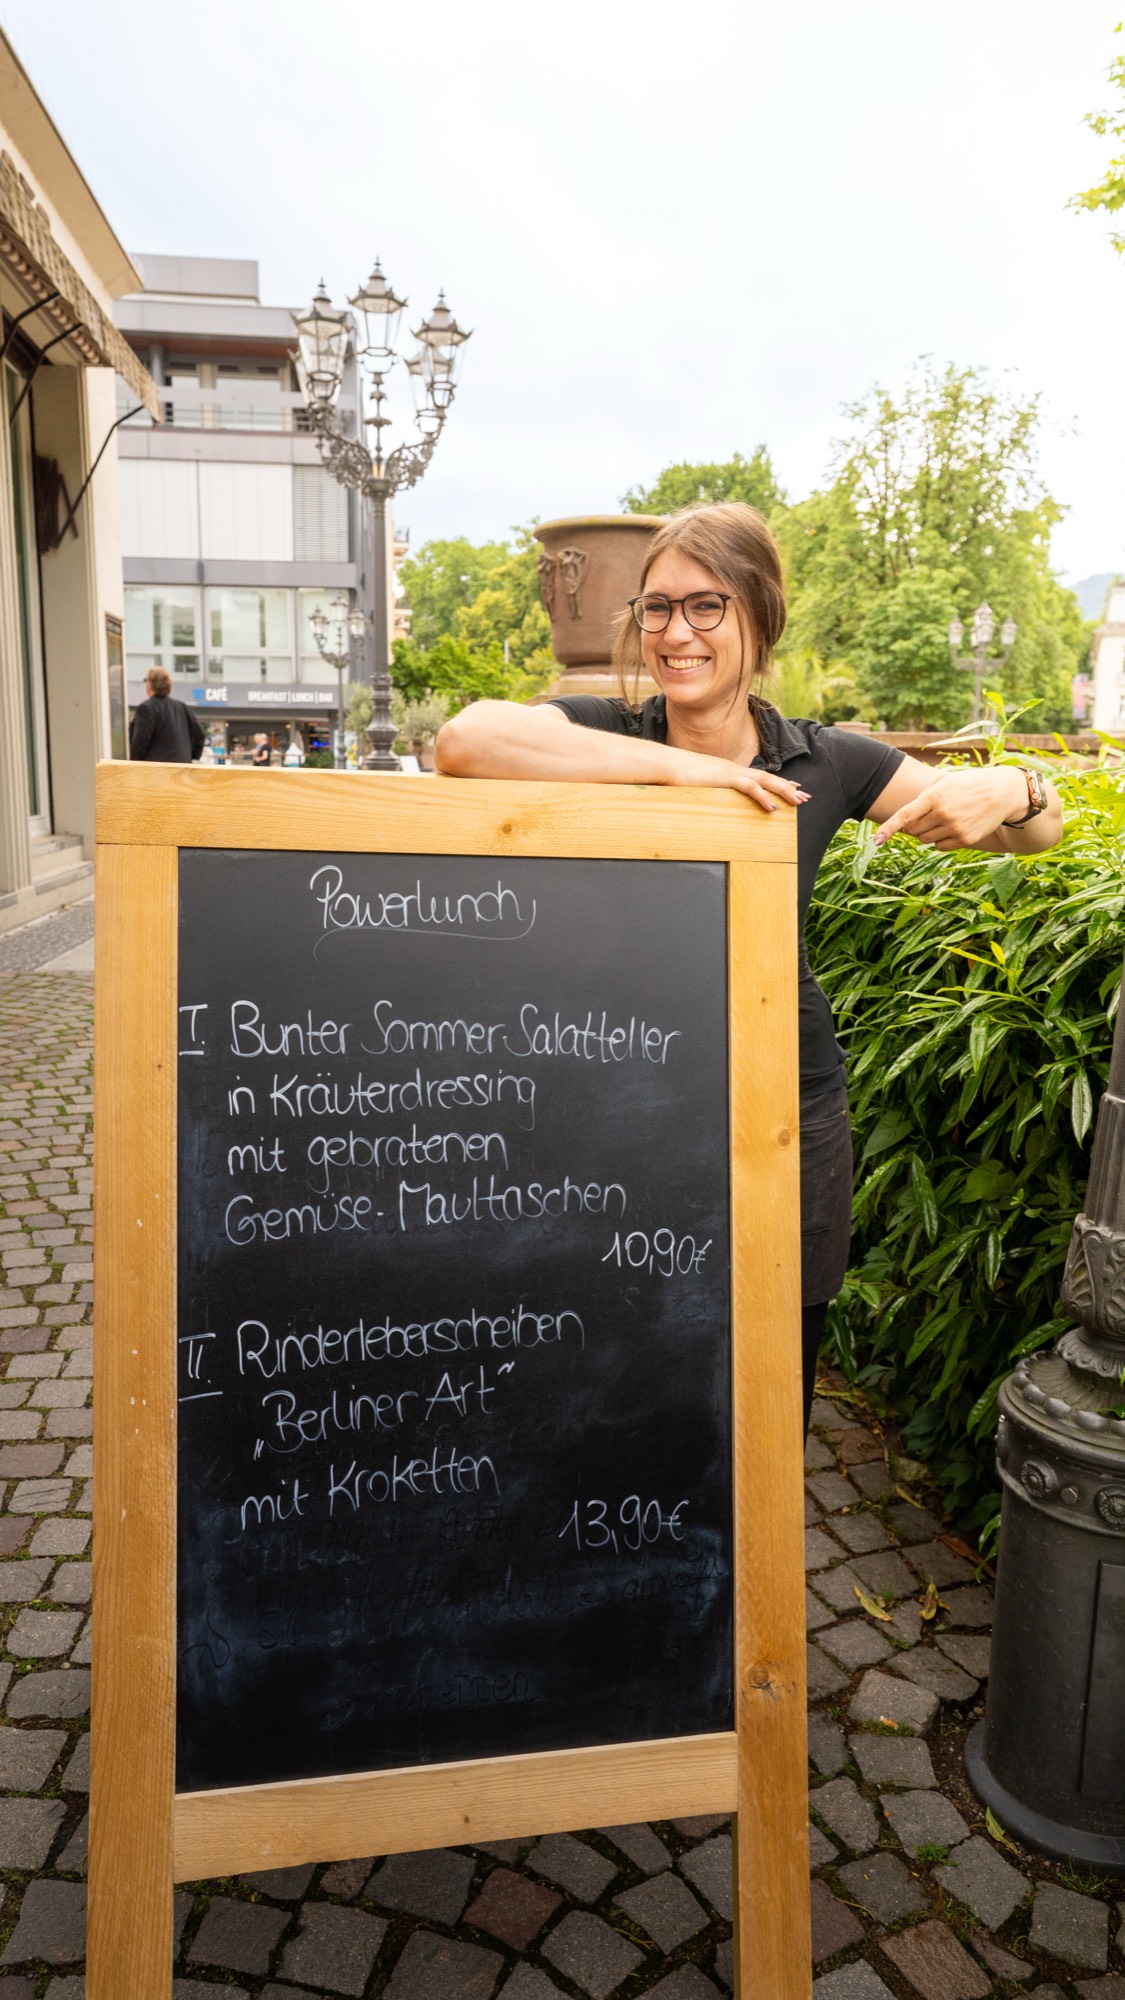 CAFÉ BREAKFAST | LUNCH | BAR
Powerlunch
I. Bunter Sommer-Salatteller
in Kräuterdressing
mit gebratenen
Gemüse-Maultaschen
10,90€
II. Rinderleberscheiben
„Berliner Art“
mit Kroketten
13,90€